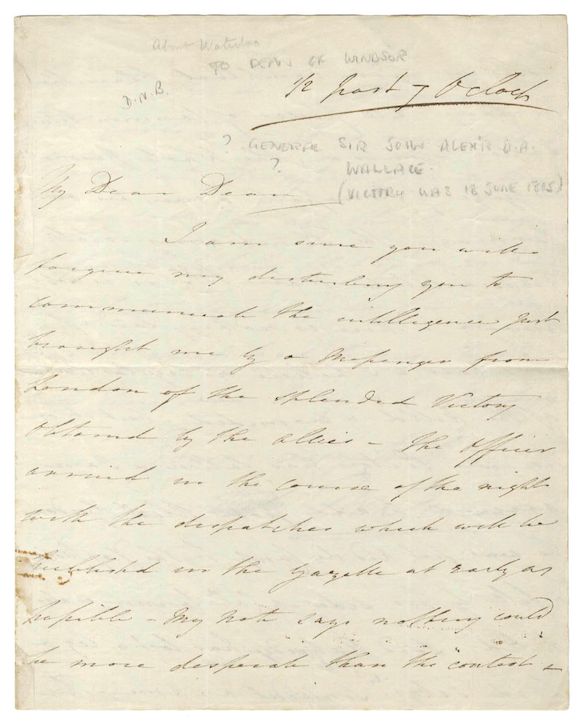 About Waterloo
TO DEAN OF WINDSOR
D.N.B.
1/2 past 7 o'Clock
? GENERAL SIR JOHN ALEX'R D.A.
? WALLACE.
(VICTORY WAS 18 JUNE 1815)
My Dear Dean
I am sure you will
forgive my disturbing you to
communicate the intelligence just
brought me by a Messenger from
London of the splendid Victory
obtained by the allies - The officer
arrived in the course of the night
with the dispatches which will be
published in the Gazette as early as
possible - My note says nothing could
be more desperate than the contest -